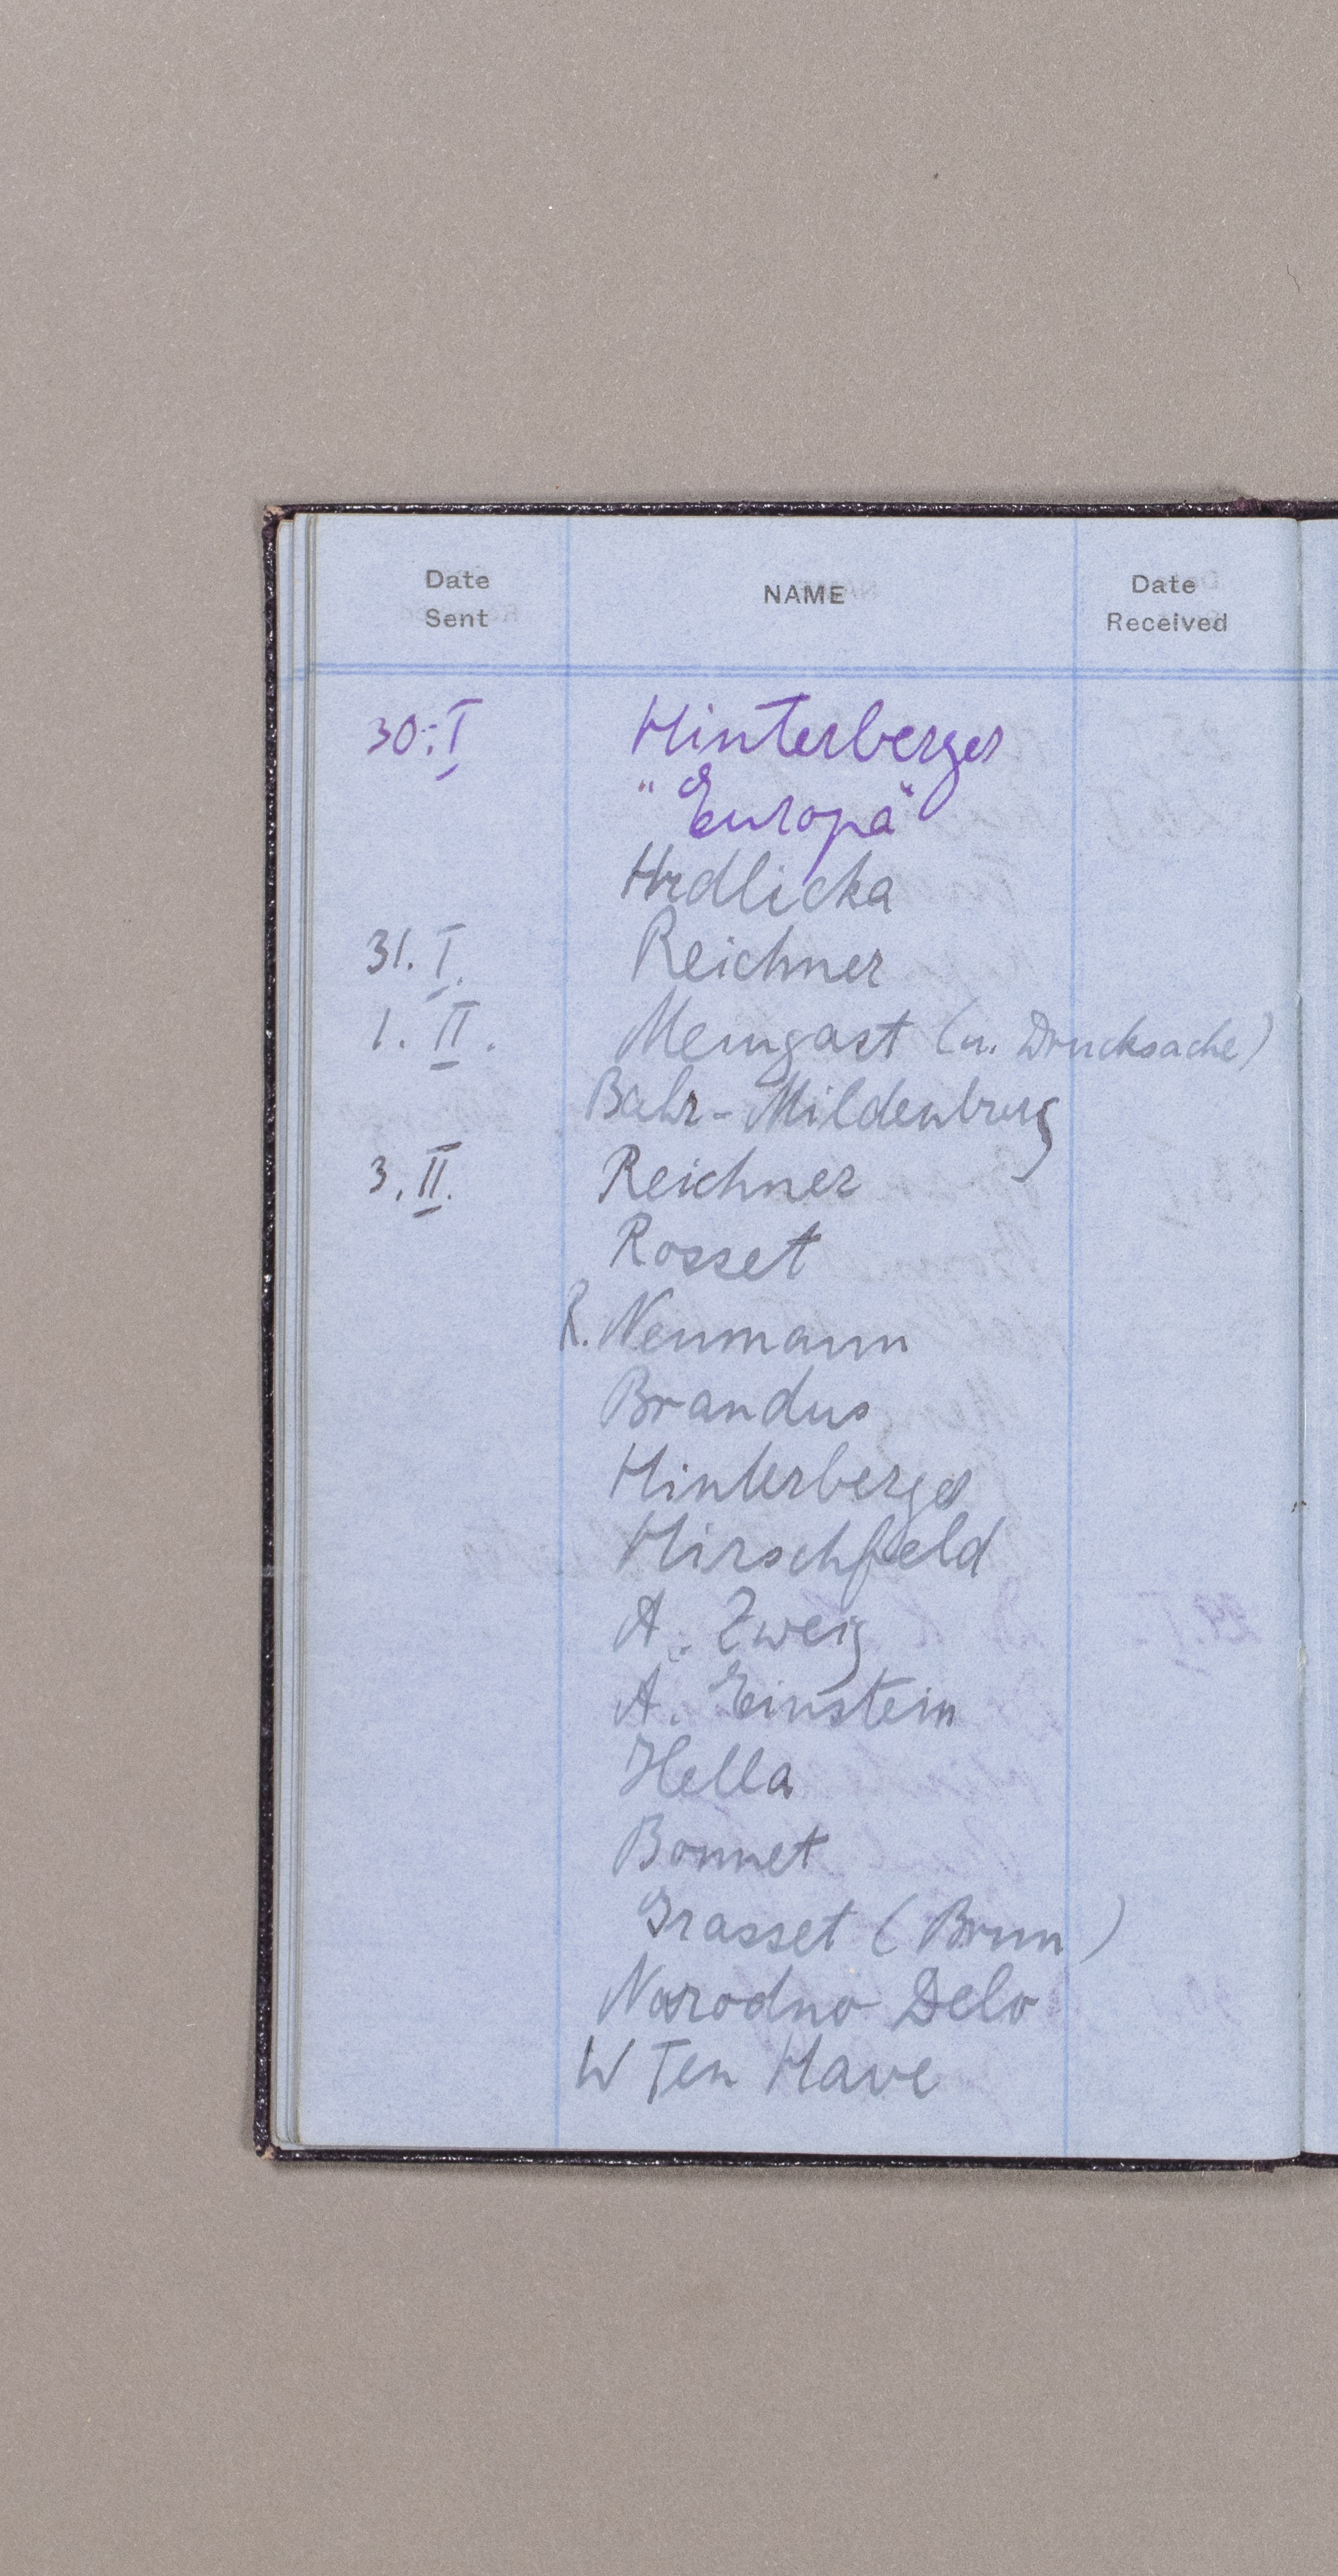 Date Sent NAME Date Received
30. I Hinterberger
"Europa"
Hrdlicka
31. I. Reichner
1. II. Meingast (u. Drucksache)
Bahr-Mildenburg
3. II. Reichner
Rosset
R. Neumann
Brandus
Hinterberger
Hirschfeld
A. Zweig
A. Einstein
Hella
Bonnet
Grasset (Brun)
Narodno Delo
W Ten Have